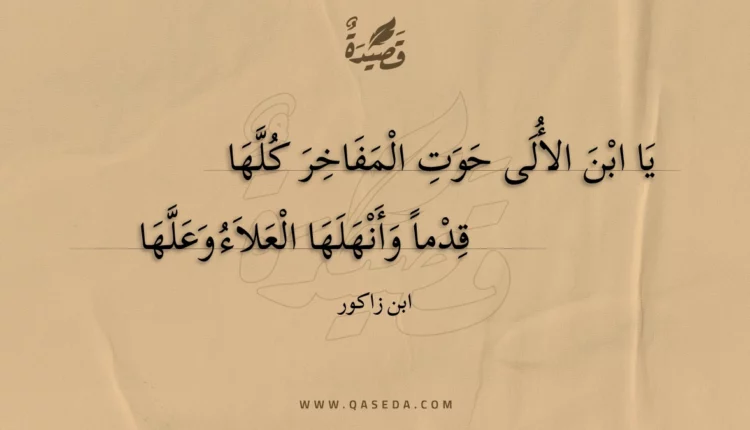 قَصِيدَةٌ
يَا ابْنَ الأُلَى حَوَتِ الْمَفَاخِرَ كُلَّهَا
قِدْماً وَأَنْهَلَهَا الْعَلاَءُ وَعَلَّهَا
ابن زاكور
WWW.QASEDA.COM